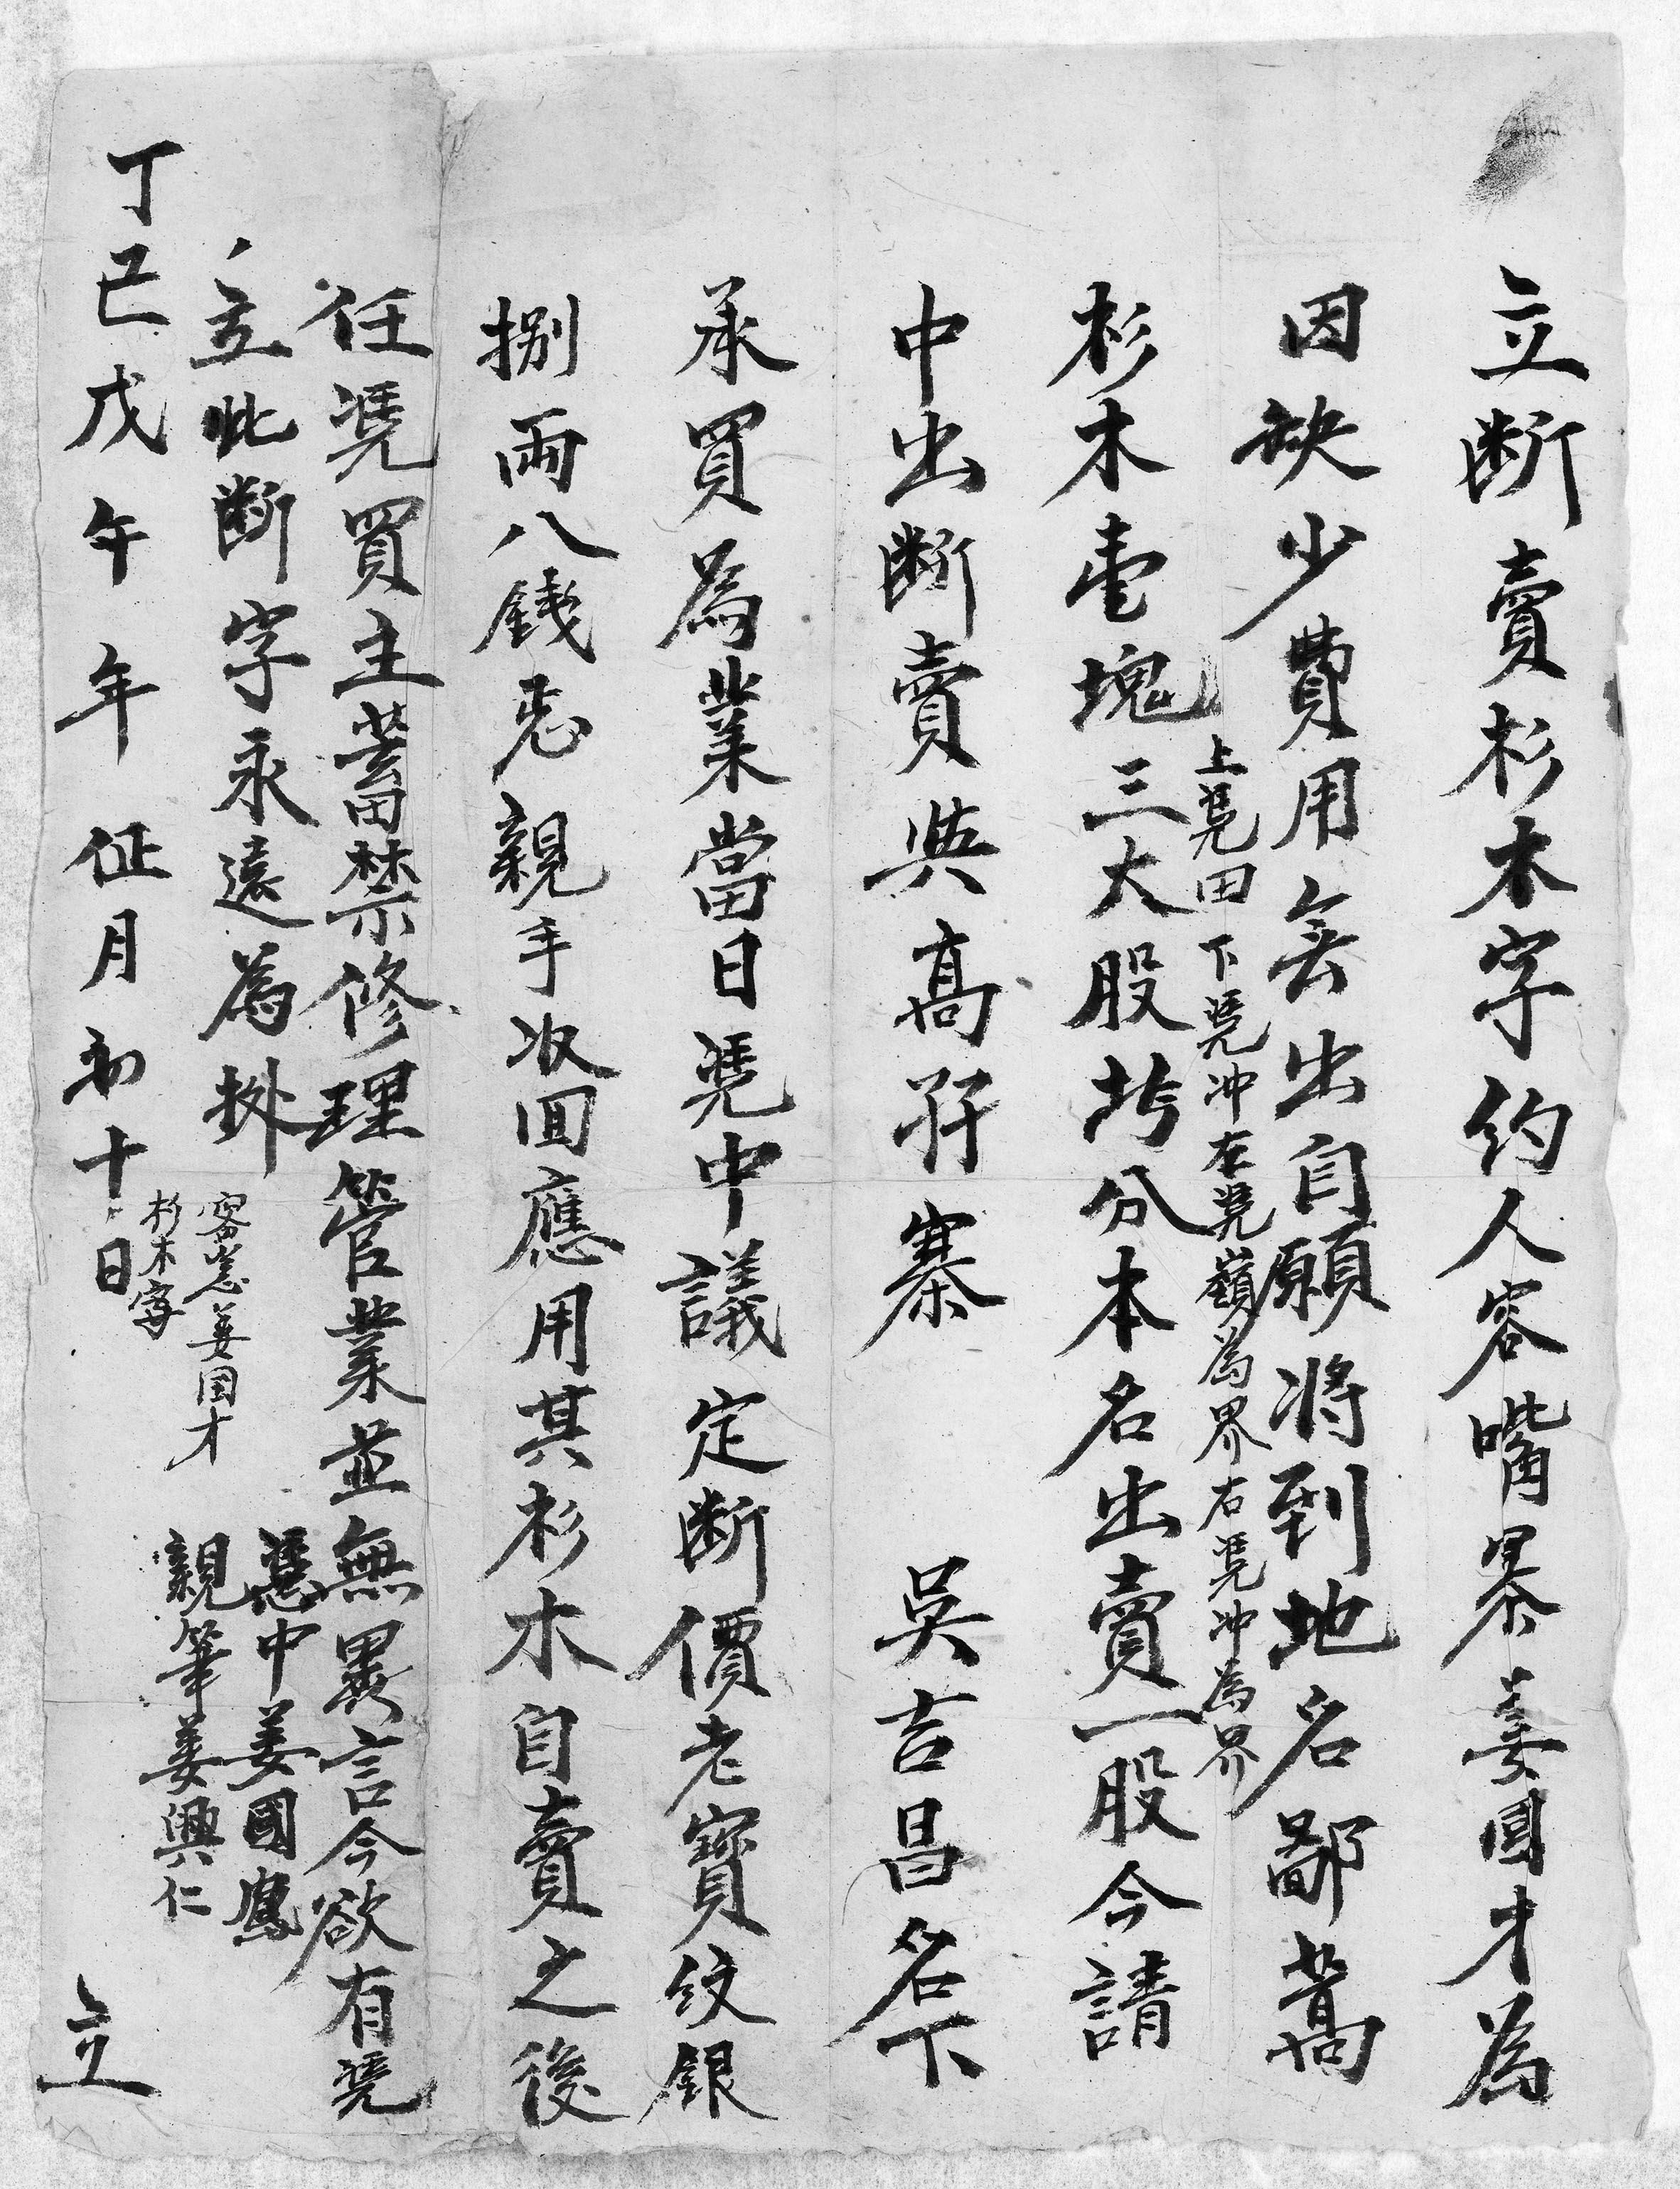 立断賣杉木字約人容嘴暴姜国才為
因缺少費用无出自願將到地名鄙蒿
上凴田下凴冲左凴嶺為界右凴冲為界
杉木壹塊三大股均分本名出賣一股今請
中出断賣與髙孖寨 吳吉昌名下
承買為業當日凴中議定断價老寶紋銀
捌兩八錢恁親手收回應用其杉木自賣之後
任凴買主蓄禁修理管業並無異言今欲有凴
立此断字永遠為㨿
凴中姜國鳳
親筆姜興仁
姜国才
杉木字
丁巳戊午年征月初十日 立